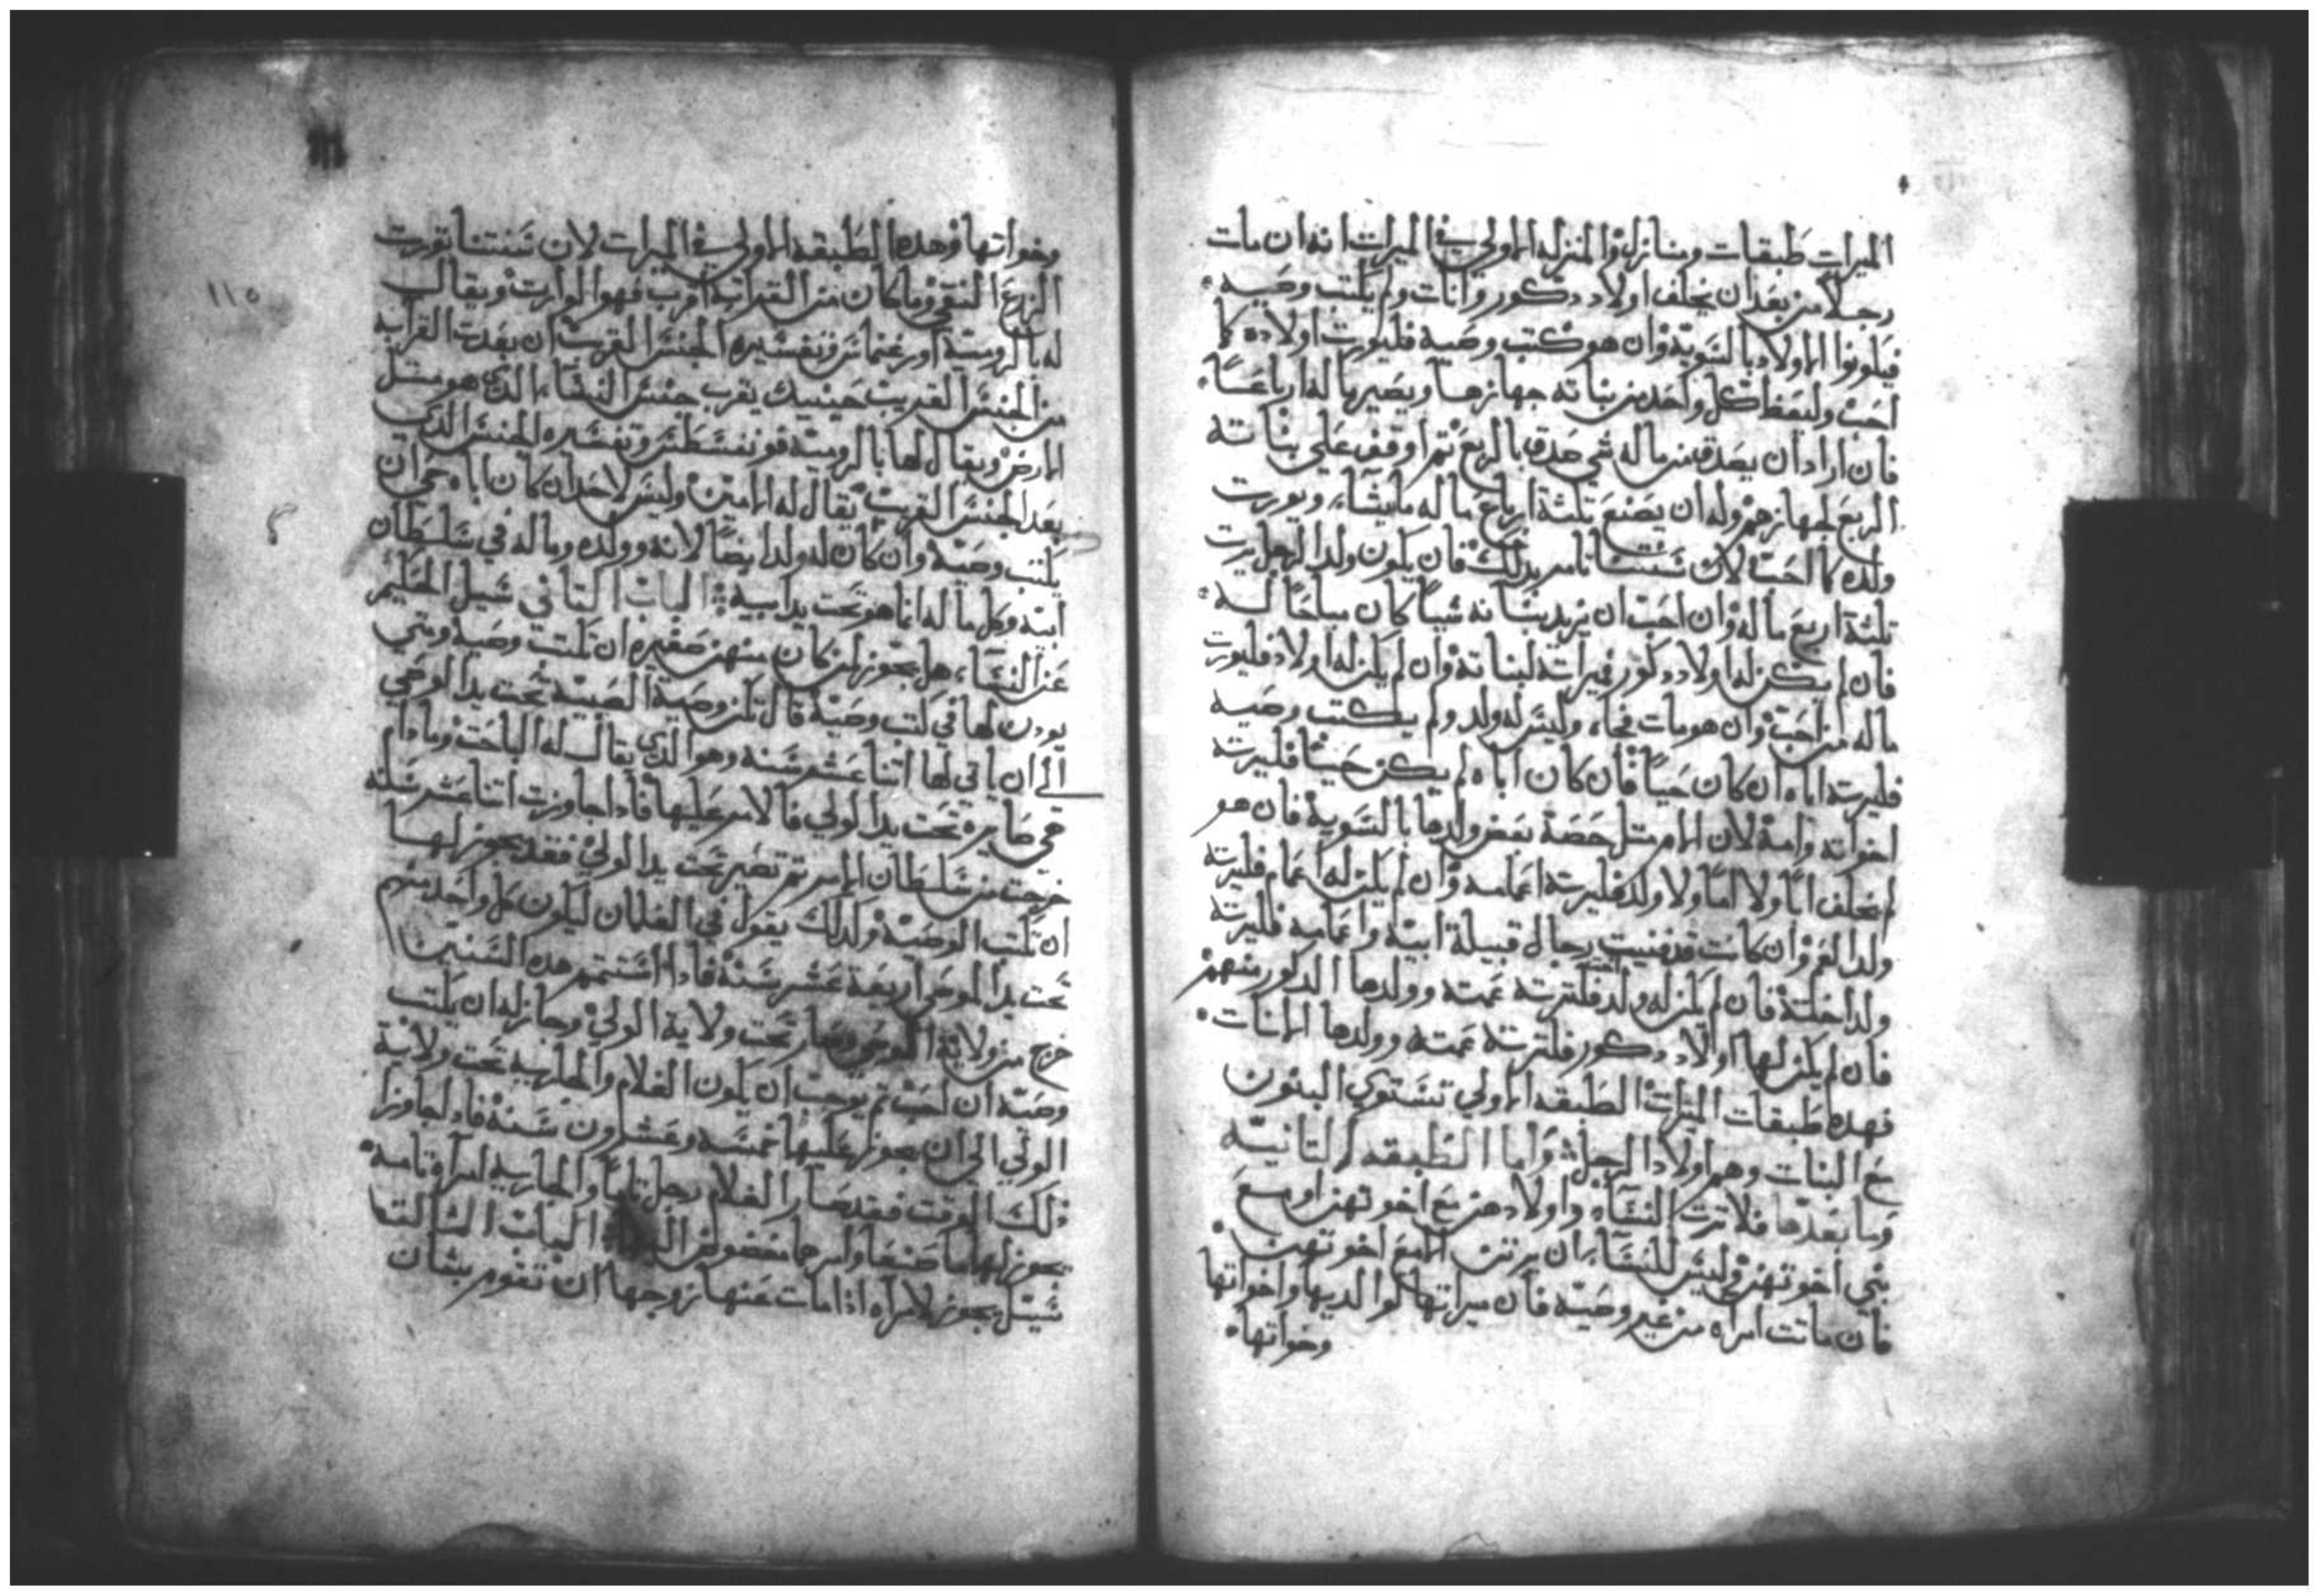 الميرات طبقات ومنازل والمنزله الاولي في الميرات انه ان مات
رجلا من بعد ان يخلف اولاد دكور وانات ولم يكتب وصيه
فيكونوا الاولاد بالسوية وان هو كتب وصية فليورت اولاده كما
احب وليعط كل واحد من بناته جهازها ويصير ماله ارباعا
فان اراد ان يصدق من ماله شي صدق بالربع تم اوقف علي بناته
الربع لجهازهم وله ان يصنع بثلثة ارباع ماله مايشاء ويورت
ولده كما احب لان سنتنا تامر بدلك فان يكون ولد الرجل يرت
تلتة اربع ماله وان احب ان يزيد بناته شيا كان مباحا له
فان لم يكن له اولاد دكور فميراته لبناته وان لم يكن له اولاد فليورت
ماله من احب وان هو مات فجاء وليس له ولد ولم يكتب وصيه
فليرته اباه ان كان حيا فان كان اباه لم يكن حيا فليرته
اخواته وامه لان الام متل حصة بعض ولدها بالسوية فان هو
لم يخلف ابا ولا اما ولا ولد فليرته اعمامه وان لم يكن له اعمام فليرته
ولد العم وان كانت قد فنيت رجال قبيلة ابيه واعمامه فليرته
ولد اختة فان لم يكن له ولد اخت فلترته عمته وولدها الدكور منهم
فان لم يكن لها اولاد دكور فلترته عمته وولدها الانات
فهده طبقات الميرات الطبقه الاولي تستوي البنون
مع البنات وهم اولاد الرجل واما الطبقه التانيه
وما بعدها فلا ترت النساء واولادهن مع اخوتهن او مع
بني اخوتهن وليس للنساء ان يرتن الا مع اخوتهن
فان ماتت امراه من غير وصيه فان ميراتها لوالديها واخواتها
وخواتها
١١٥
وخواتها وهده الطبقه الاولي في الميرات لان سنتنا تورت
الزرع النقي وما كان من القرابة اقرب فهو الوارت ويقال
له بالرومية وتفسيره الجنس القريب ان بعدت القرابه
من الجنس القريب حينيد يقرب جنس النساء الدي هو متل
الارض ويقال لها بالرومية وتفسيره الجنس الدي
بعد الجنس القريب يقال له وليس لاحد ان كان اباه حي ان
يكتب وصية وان كان له ولد ايضا لانه وولده وماله في سلطان
ابيه وكل ماله انما هو تحت يد ابيه الباب التاني سيل الحكيم
عن النساء هل يجوز لمن كان منهن صغيره ان تكتب وصية ومتي
يودن لها في كتب وصية قال تكن وصية الصبية تحت يد الوصي
الي ان ياتي لها اتنا عشر سنه وهو الدي يقال له الباحت وما دام
هي صايره تحت يد الولي فالامر عليها فادا جاوزت اتنا عشر سنه
خرجت من سلطان الامر تم تصير تحت يد الولي فقد يجوز لها
ان تكتب الوصية وكدلك يقول في الغلمان ليكون كل واحد منهم
تحت يد الموصي اربعة عشر سنة فادا استتمم هده السنين
خرج من ولاية الوصي وصار تحت ولاية الولي وجاز له ان يكتب
وصيه ان احب تم يوجب ان يكون الغلام والجاريه تحت ولاية
الولي الي ان يجوز عليها خمسه وعشرون سنة فادا جاوزا
دلك الوقت فقد صار الغلام رجل تاما والجاريه امراة تامه
يجوز لهما ما صنعا وامرها الباب التالت
سيل يجوز لامراه ادا مات عنها زوجها ان تقوم بشان